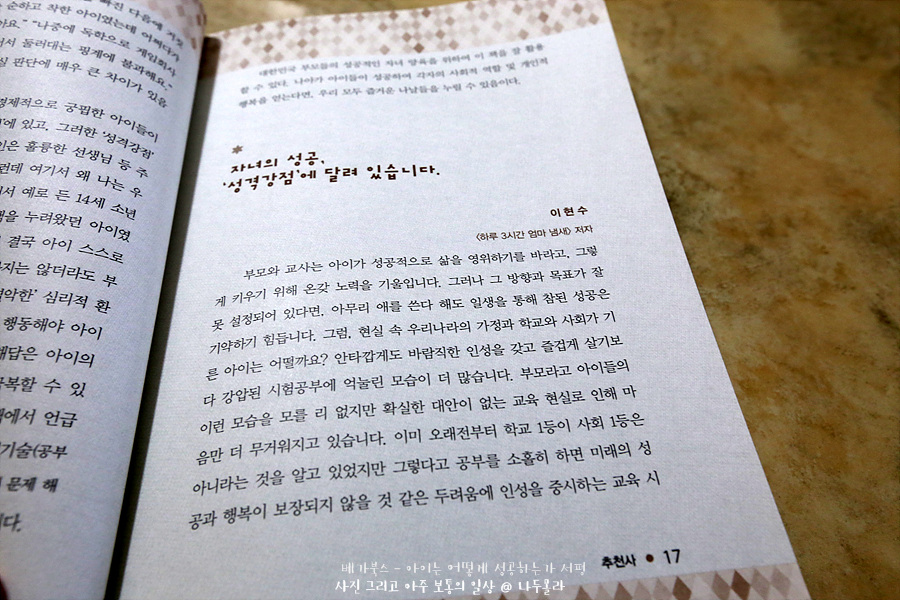 빠진 다음에
순하고 착한 아이였는데 어쩌다가
"나중에 독학으로 게임회사
둘러대는 핑계에 불과해요."
판단에 매우 큰 차이가 있을
경제적으로 궁핍한 아이들이
에 있고, 그러한 '성격강점'
인은 훌륭한 선생님 등 주
런데 여기서 왜 나는 우
서 예로 든 14세 소년
택을 누려왔던 아이였
결국 아이 스스로
지는 않더라도 부
약한' 심리적 환
행동해야 아이
해답은 아이의
극복할 수 있
에서 언급
기술(공부
문제 해
다.
대한민국 부모들의 성공적인 자녀 양육을 위하여 이 책을 잘 활용
할 수 있다. 나아가 아이들이 성공하여 각자의 사회적 역할 및 개인적
행복을 얻는다면, 우리 모두 즐거운 나날들을 누릴 수 있음이다.
자녀의 성공,
'성격강점'에 달려 있습니다.
이현수
〈하루 3시간 엄마 냄새〉 저자
부모와 교사는 아이가 성공적으로 삶을 영위하기를 바라고, 그렇
게 키우기 위해 온갖 노력을 기울입니다. 그러나 그 방향과 목표가 잘
못 설정되어 있다면, 아무리 애를 쓴다 해도 일생을 통해 참된 성공은
기약하기 힘듭니다. 그럼, 현실 속 우리나라의 가정과 학교와 사회가 기
른 아이는 어떨까요? 안타깝게도 바람직한 인성을 갖고 즐겁게 살기보
다 강압된 시험공부에 억눌린 모습이 더 많습니다. 부모라고 아이들의
이런 모습을 모를 리 없지만 확실한 대안이 없는 교육 현실로 인해 마
음만 더 무거워지고 있습니다. 이미 오래전부터 학교 1등이 사회 1등은
아니라는 것을 알고 있었지만 그렇다고 공부를 소홀히 하면 미래의 성
공과 행복이 보장되지 않을 것 같은 두려움에 인성을 중시하는 교육 시
추천사 ● 17
베가북스 - 아이는 어떻게 성공하는가 서평
사진 그리고 아주 보통의 일상 @ 나두몰라